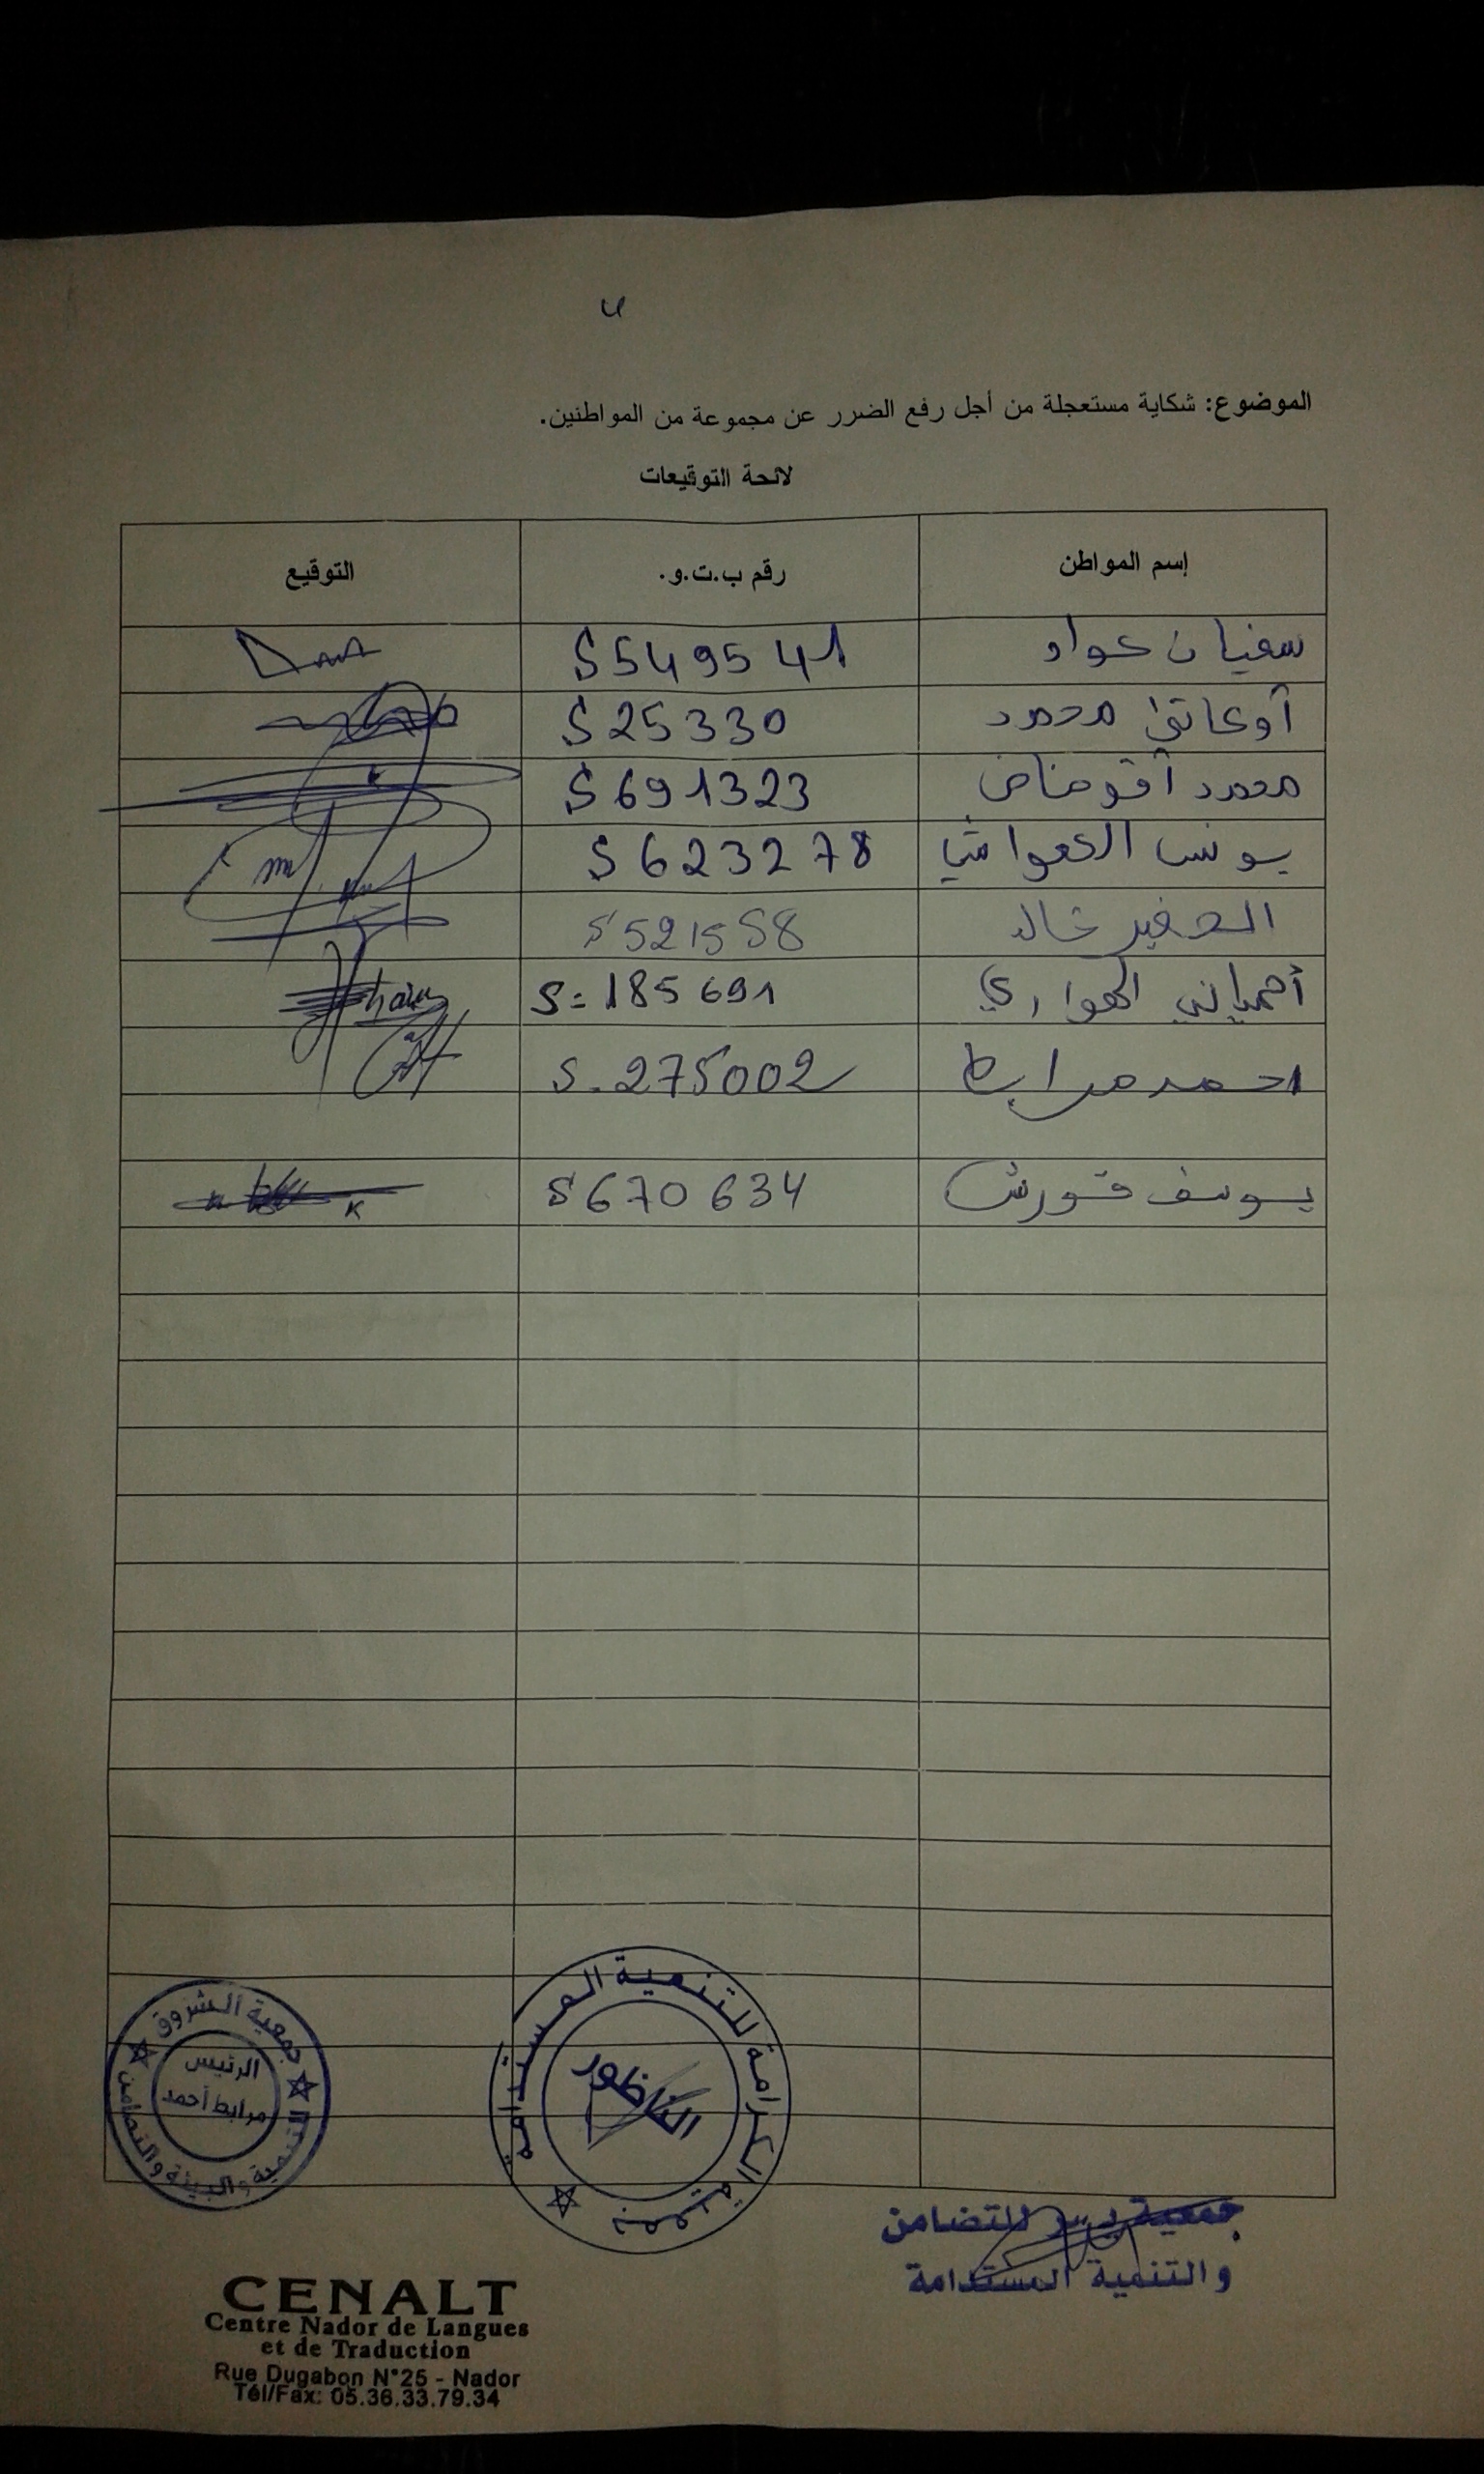 الموضوع: شكاية مستعجلة من أجل رفع الضرر عن مجموعة من المواطنين.
لائحة التوقيعات
إسم المواطن رقم ب.ت.و. التوقيع
سفيان عواد S549541
أوعاتي محمد S25330
محمد أقوضاض S691323
يونس العواشي S623278
الصغير خالد S521558
أحمياني الهواري S=185691
احمد مرابط S.275002
يوسف قورش S670634
جمعية الشروق
للتنمية والبيئة والتضامن
الرئيس
مرابط أحمد
جمعية الكرامة للتنمية المستدامة
الناظور
جمعية للتضامن
والتنمية المستدامة
CENALT
Centre Nador de Langues
et de Traduction
Rue Dugabon N°25 - Nador
Tél/Fax: 05.36.33.79.34